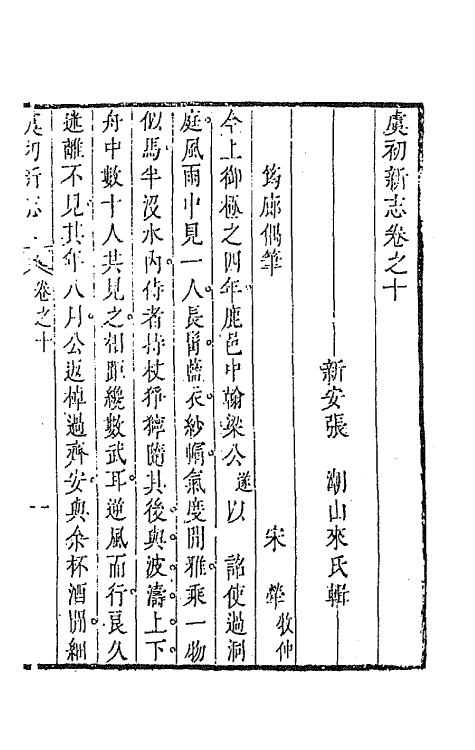 虞初新志卷之十
新安張　潮山來氏輯
筠廊偶筆　宋　犖牧仲
今上御極之四年鹿邑中翰梁公遂以　詔使過洞
庭風雨中見一人長鬚藍衣紗帽氣度閒雅乘一物
似馬半沒水內侍者持杖猙獰隨其後與波濤上下
舟中數十人共見之相距纔數武耳逆風而行良久
迷離不見其年八月公返棹過齊安與余杯酒間細
虞初新志　卷之十　一